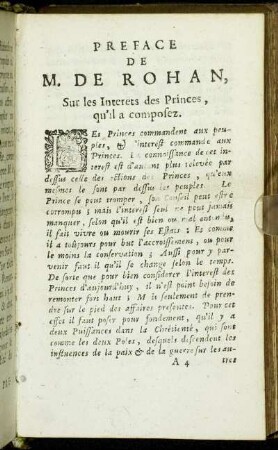 PREFACE
DE
M. DE ROHAN,
Sur les Interets des Princes,
qu'il a composez.
LEs Princes commandent aux peu-
ples, & l'interest commande aux
Princes. La connoissance de cet in-
terest est d'autant plus relevée par
dessus celle des actions des Princes, qu'eux
mesmes le sont par dessus les peuples. Le
Prince se peut tromper, son Conseil peut estre
corrompu; mais l'interest seul ne peut jamais
manquer, selon qu'il est bien ou mal entendu,
il fait vivre ou mourir les Estats; Et comme
il a toûjours pour but l'accroissement, ou pour
le moins la conservation; Aussi pour y par-
venir faut il qu'il se change selon le temps.
De sorte que pour bien considerer l'interest des
Princes d'aujourd'huy, il n'est point besoin de
remonter fort haut; M is seulement de pren-
dre sur le pied des affaires presentes. Pour cet
effet il faut poser pour fondement, qu'il y a
deux Puissances dans la Chrétienté, qui sont
comme les deux Poles, desquels descendent les
influences de la paix & de la guerre sur les au-
A 4 tres